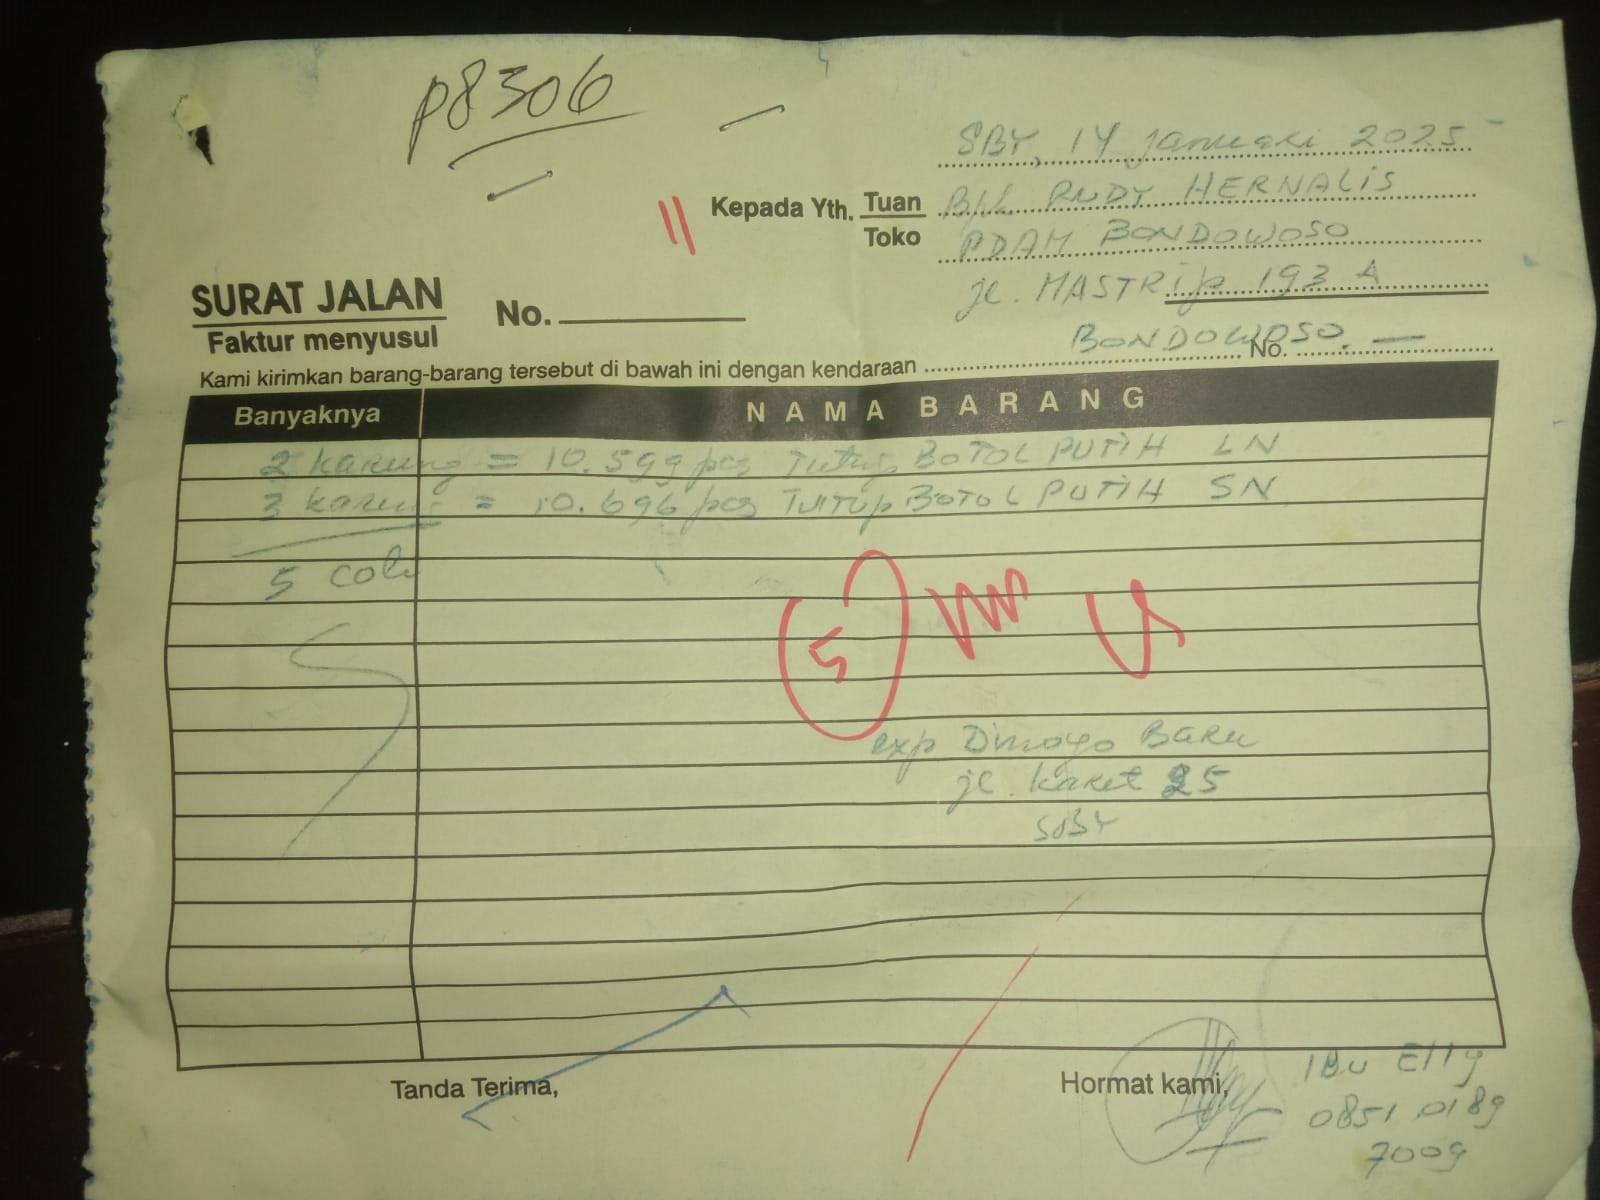 P8306
SBY, 14 Januari 2025
Kepada Yth. Tuan Bpk RUDY HERNALIS
Toko PDAM BONDOWOSO
jl. MASTRip 193 A
SURAT JALAN No.
Faktur menyusul
BONDOWOSO.
Kami kirimkan barang-barang tersebut di bawah ini dengan kendaraan No.
Banyaknya NAMA BARANG
2 karung = 10.599 pcs Tutup BOTOL PUTIH LN
3 karung = 10.696 pcs TUTup BOTOL PUTIH SN
5 coli
5
exp Dinoyo Baru
jl. Karet 25
SBY
Tanda Terima, Hormat kami, IBu Elly
0851 0189
7009